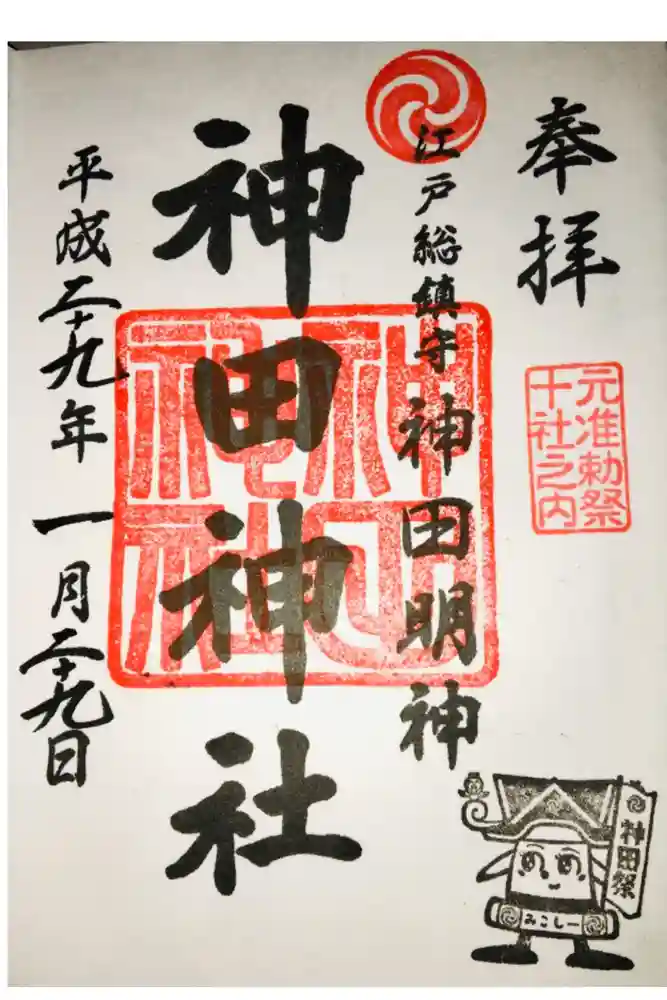 奉拝
元准勅祭
十社之内
江戸総鎮守 神田明神
神田神社
平成二十九年 一月二十九日
神田祭
みこしー